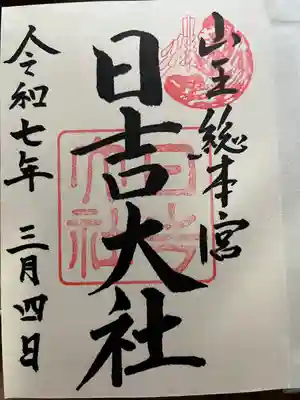 山王総本宮
日吉大社
令和七年 三月四日
日吉大社